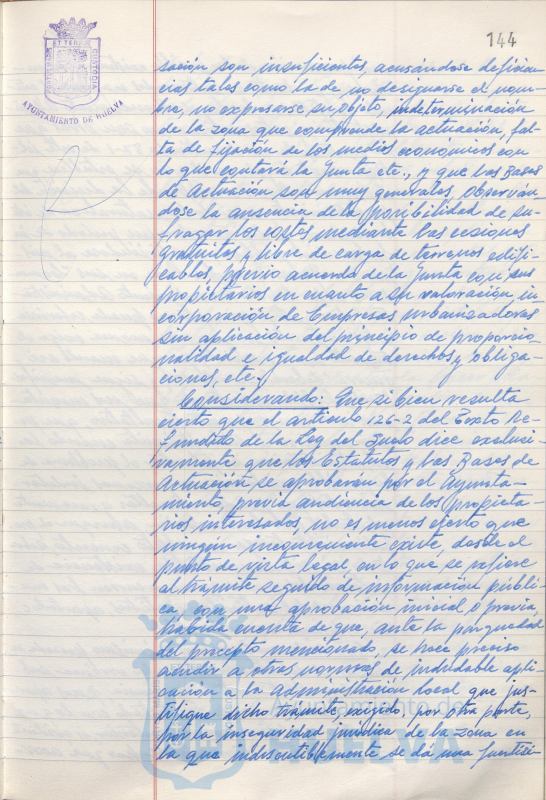 144
PORTUS MARIS ET TERRAE CUSTODIA
AYUNTAMIENTO DE HUELVA
sación son insuficientes, acusándose deficien-
cias tales como la de no designarse el nom-
bre, no expresarse su objeto, indeterminación
de la zona que comprende la actuación, fal-
ta de fijación de los medios económicos con
lo que contará la Junta etc., y que las Bases
de Actuación son muy generales, observán-
dose la ausencia de la posibilidad de su-
fragar los costes mediante las cesiones
gratuitas y libre de carga de terrenos edifi-
cables, previo acuerdo de la Junta con sus
propietarios en cuanto a su valoración, in-
corporación de Empresas urbanizadoras
sin aplicación del principio de proporcio-
nalidad e igualdad de derechos y obliga-
ciones, etc.
Considerando: Que si bien resulta
cierto que el artículo 126-2 del Texto Re-
fundido de la Ley del Suelo dice exclusi-
vamente que los Estatutos y las Bases de
Actuación se aprobarán por el Ayunta-
miento, previa audiencia de los propieta-
rios interesados, no es menos cierto que
ningún inconveniente existe, desde el
punto de vista legal, en lo que se refiere
al trámite seguido de información públi-
ca, con una aprobación inicial o previa,
habida cuenta de que, ante la parquedad
del precepto mencionado, se hace preciso
acudir a otras normas de indudable apli-
cación a la administración local que jus-
tifique dicho trámite, exigido, por otra parte,
por la inseguridad jurídica de la zona en
la que indiscutiblemente se dá una fuertísi-
Ayuntamiento de
HUELVA